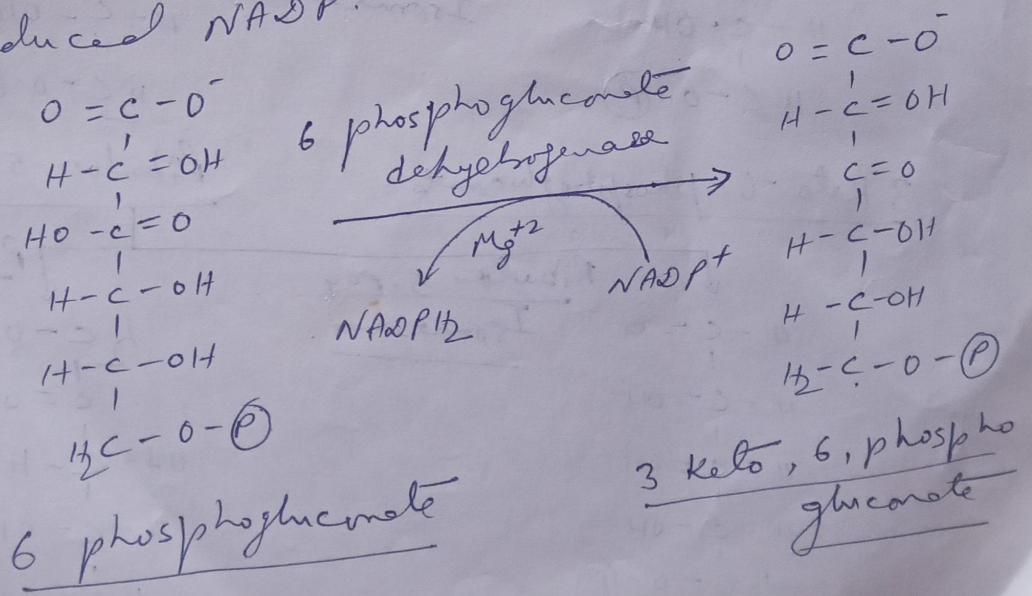 duced NADP.
O = C - O⁻
H - C = OH
HO - C = O
H - C - OH
H - C - OH
H₂C - O - Ⓟ
6 phosphogluconate
6 phosphogluconate
dehyebogenase
Mg⁺²
NADPH₂
NADP⁺
O = C - O⁻
H - C = OH
C = O
H - C - OH
H - C - OH
H₂ - C - O - Ⓟ
3 keto, 6, phospho
gluconate